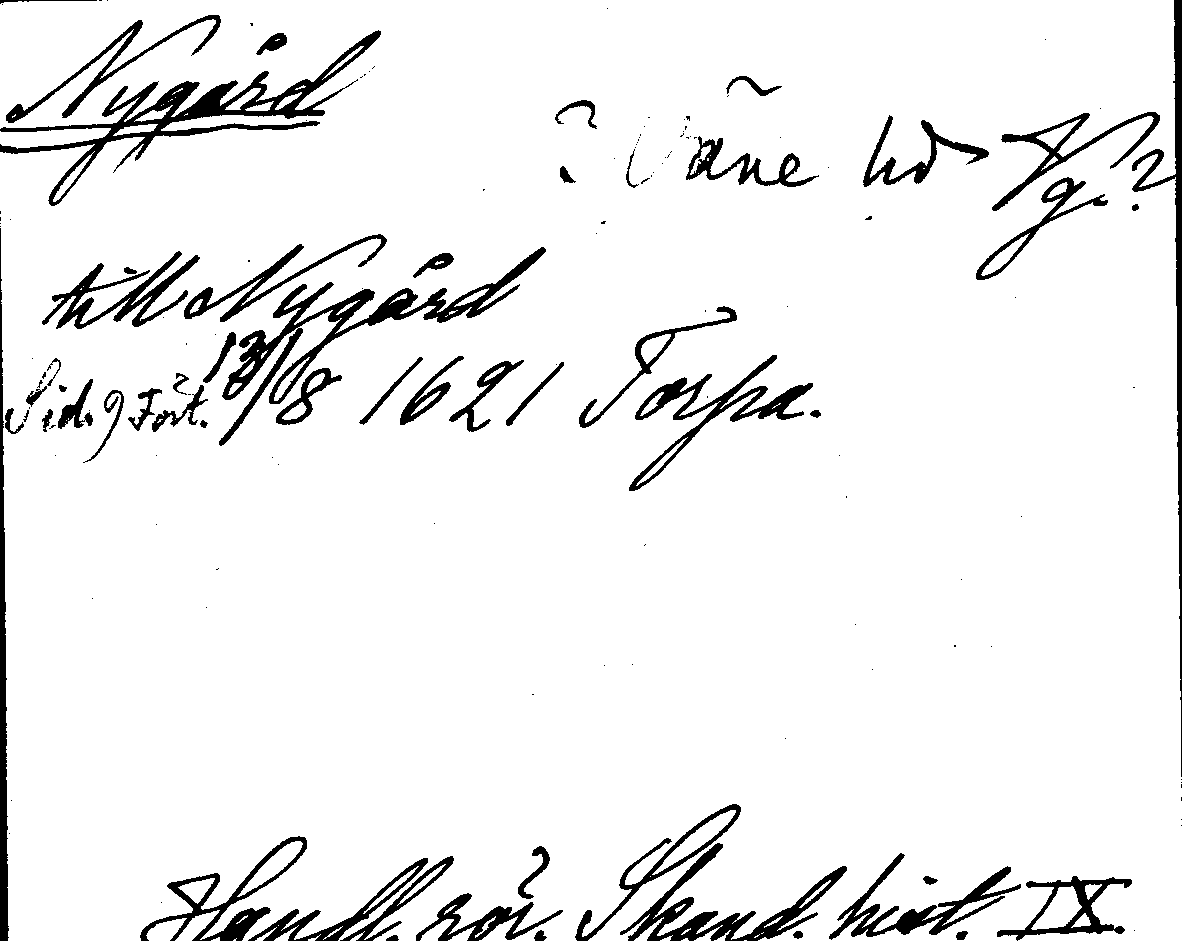 Nygård
? Väne hd Vg.?
till Nygård
Sid. 9 Fört. 13/8 1621 Torpa.
Handl. rör. Skand. hist. IX.